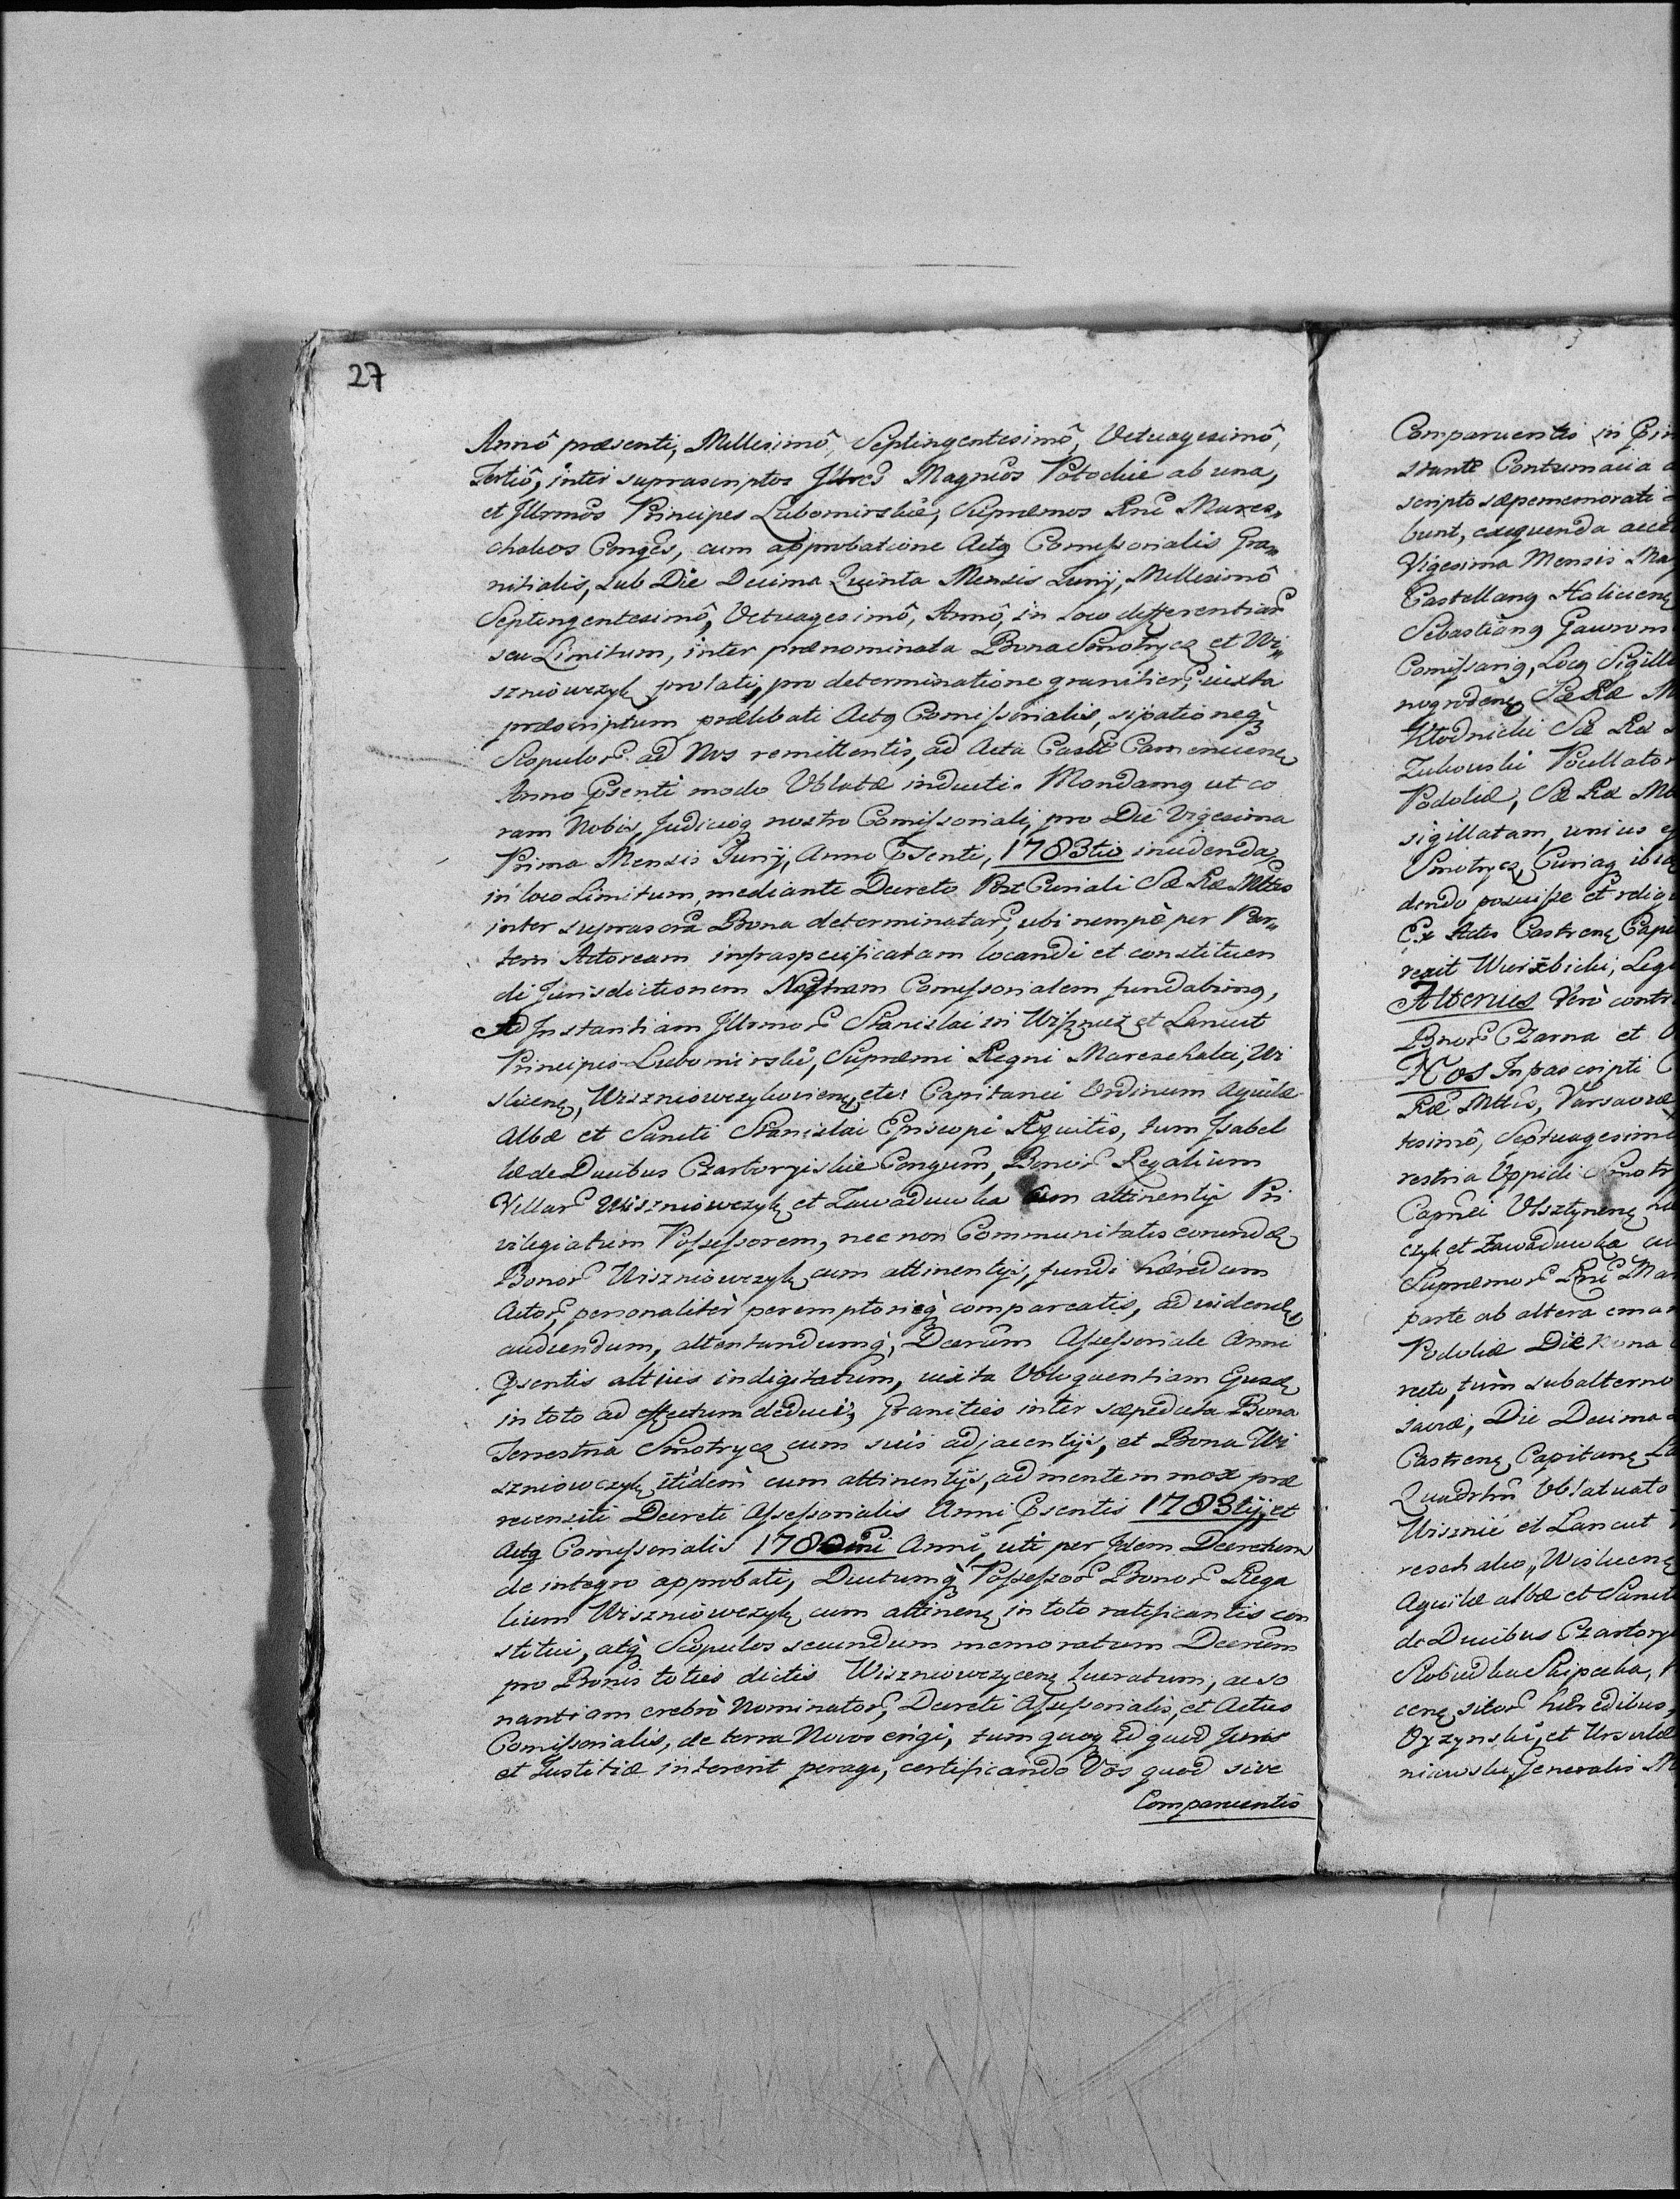 27
Annô præsenti, Millesimô, Septingentesimô, Octuagesimô,
Tertiô, inter suprascriptos Jllres Magnios Potockie ab una,
et Jllrmos Principes Lubomirskie, Supræmos Rni Mares„
chalcos Conges, cum approbatione Actg Comissorialis Gra„
nitialis, sub Die Decima Quinta Mensis Junij, Millesimô
Septingentesimô, Octuagesimô, Annô, in loco differentiar
seu Limitum, inter prænominata Bona Smotrycz et Wi„
szniowczyk prolati, pro determinatione granitier, iuxta
præscriptum prælibati Actg Comissorialis, sipationeqz
Scopulor ad Nos remittentis, ad Acta Castr Camenecenę
Anno Psenti modo Oblatæ inducti. Mandamg ut co
ram Nobis, Judicioqz nostro Comissoriali, pro Die Vigesima
Prima Mensis Junij, Anno Psenti, 1783tio incidenda,
in loco Limitum, mediante Decreto Post Curiali Sæ Ræ Mttis
inter suprascra Bona determinatar, ubi nempè per Par„
tem Actoream infraspecificatam locandi et constituen
di Jurisdictionem Nostram Comissorialem fundabimg,
Ad Jnstantiam Jllrmor Stanislai in Wiszniż et Lancut
Principis Lubomirski, Supræmi Regni Mareschalci, Wi
slicenę, Wiszniowczykovienę etc: Capitanei Ordinum Aquilæ
Albæ et Sancti Stanislai Episcopi Æquitis, tum Jsabel
læ de Ducibus Czartoryiskie Congum, Bonor Regalium
Villar Wiszniowczyk et Zawaduwka cum attinentijs Pri
vilegiatum Possessorem, nec non Communitatis eorundę
Bonor Wiszniowczyk cum attinentijs, fundi hæredum
Actor, personalitèr peremptorieqz compareatis, ad videndę
audiendum, attentandumq, Decrum Assessoriale Anni
Psentis altiùs indigitatum, iuxta Obloquentiam Ejusdę
in toto ad effectum deduci, Granities inter sæpedicta Bona
Terrestria Smotrycz cum suis adjacentijs, et Bona Wi
szniowczyk itidem cum attinentijs, ad mentem mox præ
recensiti Decreti Assessorialis Anni Psentis 1783tij et
Actg Comissorialis 1780mi Anni, uti per Jdem Decretum
de integro approbati, Dictumq Possessor Bonor Rega
lium Wiszniowczyk cum attinenę in toto ratificantis con
stitui, atq Scopulos secundum memoratum Decrum
pro Bonis toties dictis Wiszniowczycenę lucratum, ac so
nantiam crebrò Nominator, Decreti Assessorialis, et Actus
Comissorialis, de terra Novos erigi, tum quoq Jd quod Juris
et Justitiæ intererit peragi, certificando Vos quod sive
Comparuentis
Comparuentis in
stante Contumacia
scripto sæpememorati
bunt, exequenda
Vigesima Mensis
Castellang Halicienę
Sebastiang
Comissarig, Locg
Sæ Ræ
Kłodnicki Sæ Ræ
Żukowski
Podoliæ, Sæ Ræ
sigillatam, unius
Smotrycz, Curiaqz
dendo posuisse et
Ex Actis Castrenę
rexit Wierzbicki,
Alterius Verò
Bonor Czarna et
Nos Jnfrascripti
Ræ Mttis, Varsaviæ
tesimô, Septuagesimô
restria Oppidi
czyk et Zawaduwka
Supræmor Rni
parte ab altera
Podoliæ Die Nona
reto, tùm subalterno
saviæ, Die Decima
Castrenę Capitanę
Wisznic et Lancut
reschalco, Wislicenę
Aquilæ albæ et
de Ducibus
cenę sitor hæredibus,
et Ursulæ
Generalis